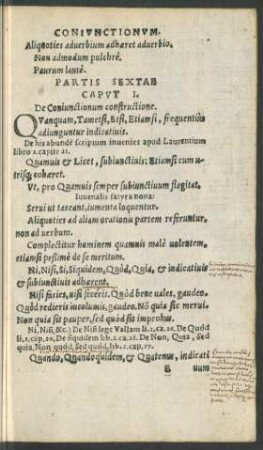 CONIVNCTIONVM.
Aliquoties aduerbium adhæret aduerbio.
Non admodum pulchrè.
Paurum lautè.
PARTIS SEXTAE
CAPVT I.
De Coniunctionum constructione.
QVanquam, Tametsi, Etsi, Etiamsi, frequentius
adiunguntur indicatiuis.
De his abundè scriptum inuenies apud Laurentium
libro 2. capite 21.
Quamuis & Licet, subiunctiuis: Etiamsi cum u-
trisq; cohæret.
Vt, pro Quamuis semper subiunctiuum flagitat.
Iuuenalis satyra nona:
Serui ut taceant, iumenta loquentur.
Aliquoties ad aliam orationis partem referuntur,
non ad uerbum.
Complectitur hominem quamuis malè uolentem,
etiamsi pessimè de se meritum.
Ni, Nisi, Si, Siquidem, Quòd, Quia, & indicatiuis
& subiunctiuis adhærent.
Nisi facies, nisi feceris. Quòd bene uales, gaudeo.
Quòd redieris incolumis, gaudeo. Nõ quia sic merui.
Non quia sit pauper, sed quòd sit improbus.
Ni, Nisi, &c.) De Nisi lege Vallam li. 2. ca. 26. De Quòd
De Siquidem lib. 2. ca. De Non, Quia, sed
quia, Non quòd, Sed quòd, lib. 2. cap. 17.
Quando, Quandoquidem, & Quatenus, indicati
E uum